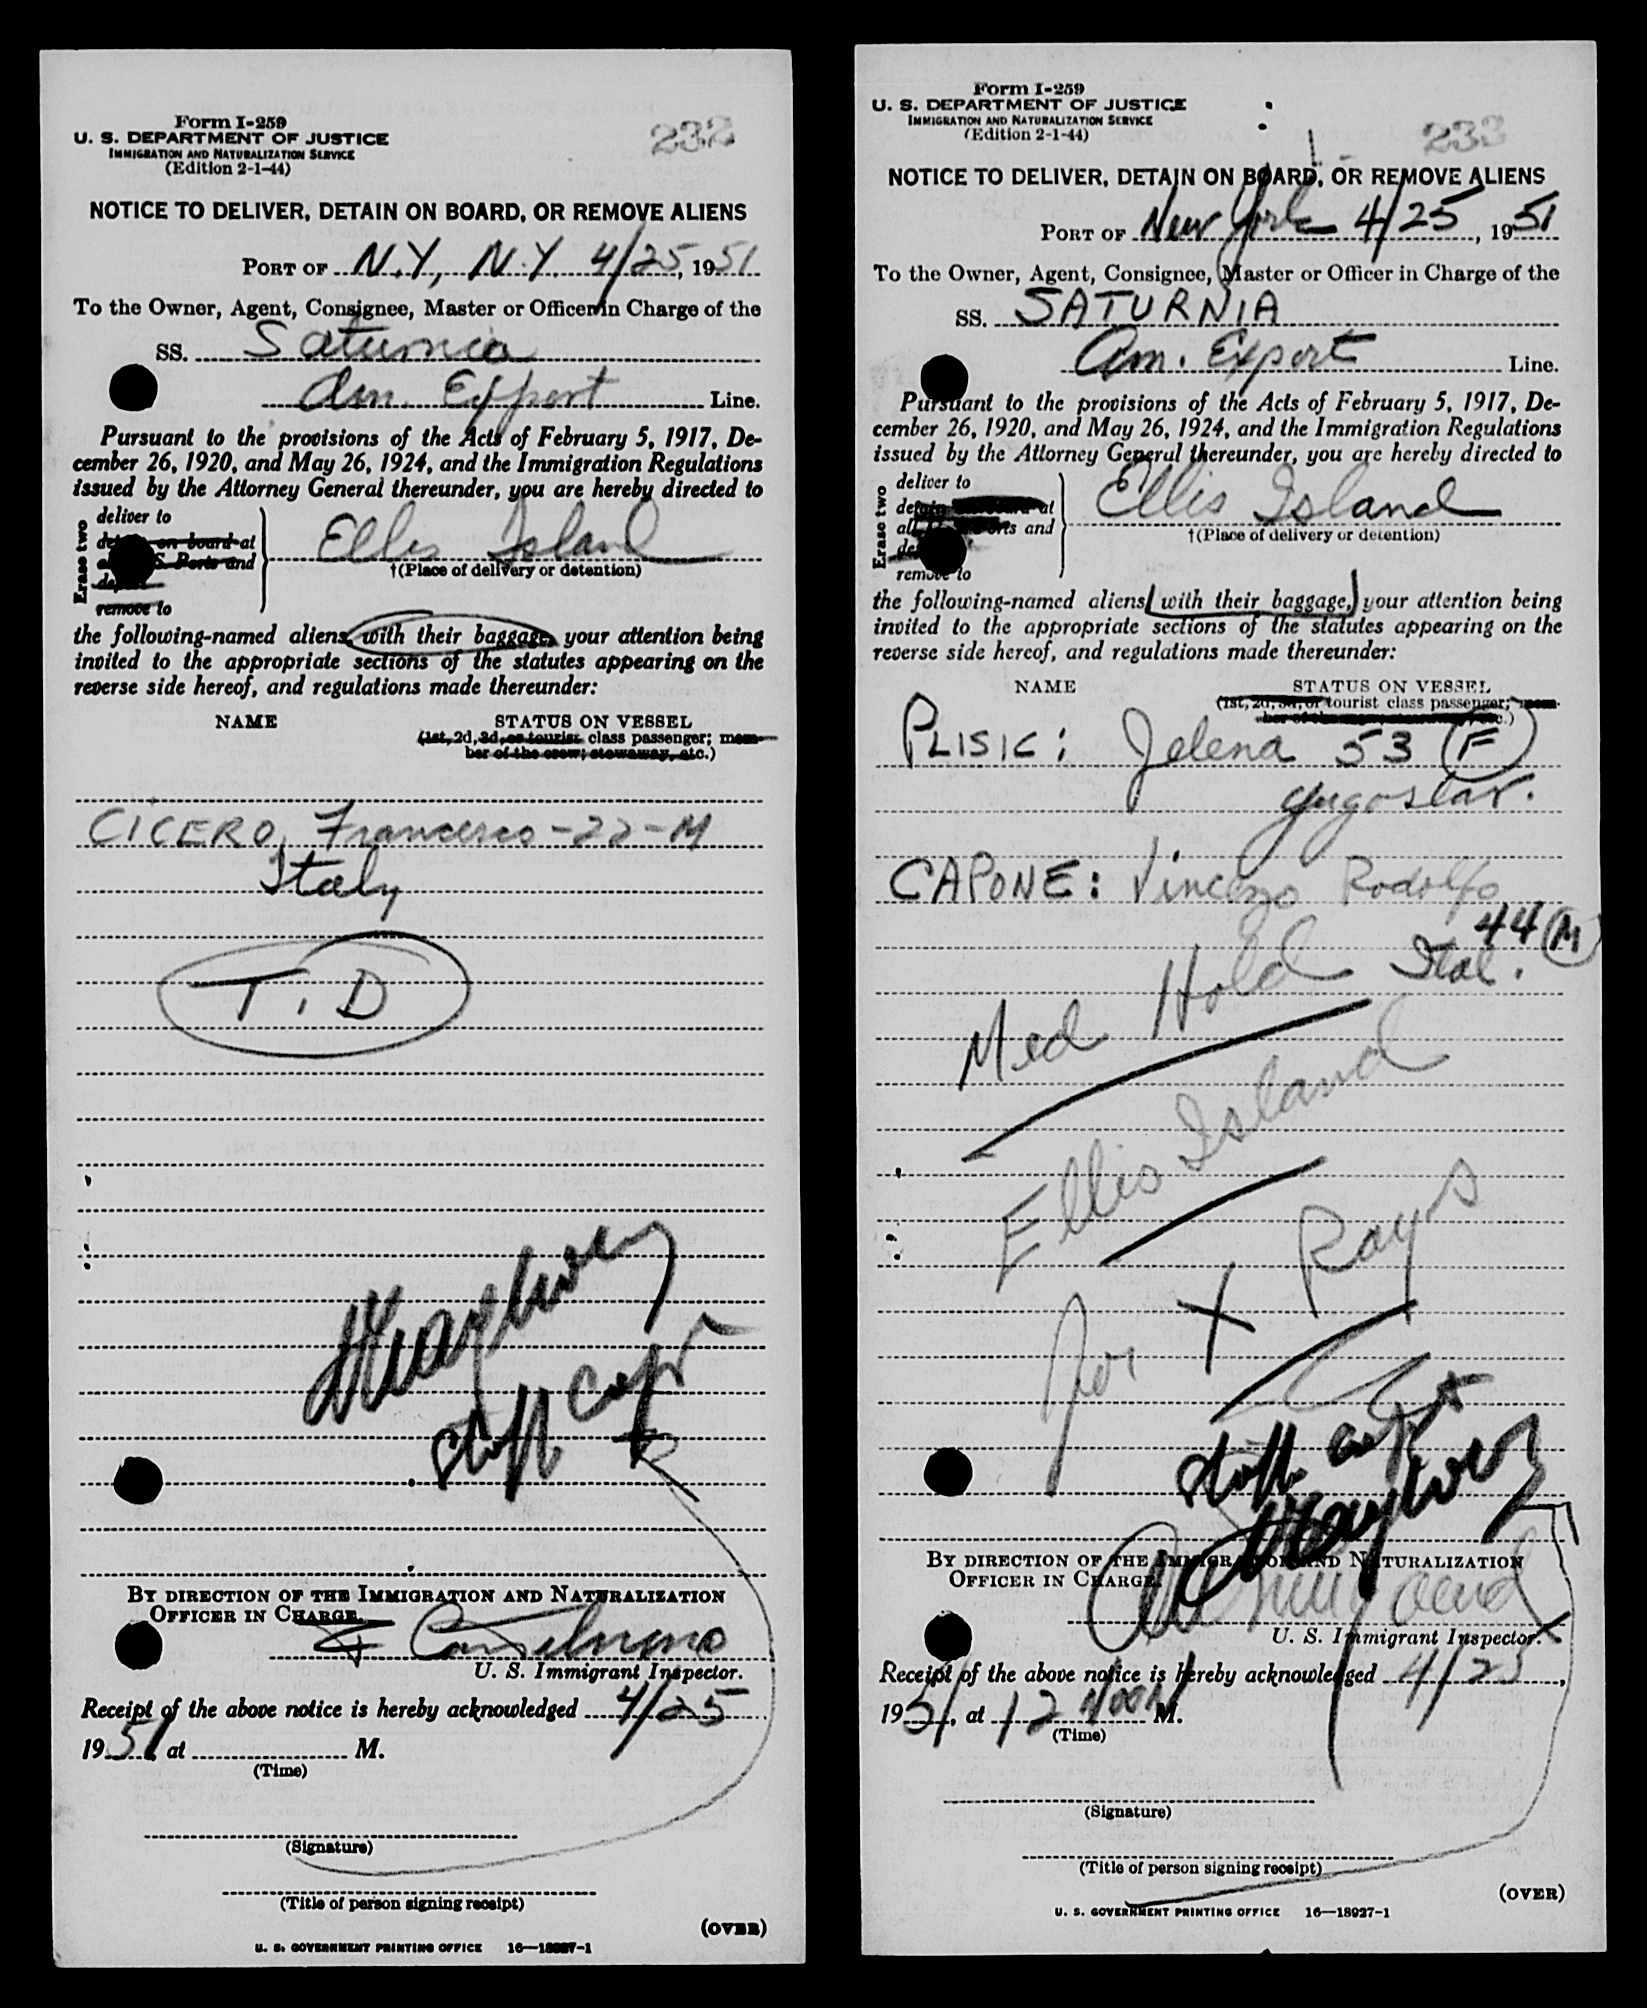 Form I-259
U. S. DEPARTMENT OF JUSTICE
IMMIGRATION AND NATURALIZATION SERVICE
(Edition 2-1-44)
232
NOTICE TO DELIVER, DETAIN ON BOARD, OR REMOVE ALIENS
PORT OF N.Y., N.Y. 4/25, 1951
To the Owner, Agent, Consignee, Master or Officer in Charge of the
SS. Saturnia
Am. Export Line.
Pursuant to the provisions of the Acts of February 5, 1917, De-
cember 26, 1920, and May 26, 1924, and the Immigration Regulations
issued by the Attorney General thereunder, you are hereby directed to
Erase two
deliver to
detain on board at
all U. S. Ports and
deport
remove to
Ellis Island
†(Place of delivery or detention)
the following-named aliens, with their baggage, your attention being
invited to the appropriate sections of the statutes appearing on the
reverse side hereof, and regulations made thereunder:
NAME STATUS ON VESSEL
(1st, 2d, 3d, or tourist class passenger; mem-
ber of the crew; stowaway, etc.)
CICERO, Francesco - 22 - M
Italy
T. D
Staff Capt
BY DIRECTION OF THE IMMIGRATION AND NATURALIZATION
OFFICER IN CHARGE.
U. S. Immigrant Inspector.
Receipt of the above notice is hereby acknowledged 4/25
1951, at M.
(Time)
(Signature)
(Title of person signing receipt)
(OVER)
U. S. GOVERNMENT PRINTING OFFICE 16—18927-1
Form I-259
U. S. DEPARTMENT OF JUSTICE
IMMIGRATION AND NATURALIZATION SERVICE
(Edition 2-1-44)
233
NOTICE TO DELIVER, DETAIN ON BOARD, OR REMOVE ALIENS
PORT OF New York 4/25, 1951
To the Owner, Agent, Consignee, Master or Officer in Charge of the
SS. SATURNIA
Am. Export Line.
Pursuant to the provisions of the Acts of February 5, 1917, De-
cember 26, 1920, and May 26, 1924, and the Immigration Regulations
issued by the Attorney General thereunder, you are hereby directed to
Erase two
deliver to
detain on board at
all U. S. Ports and
deport
remove to
Ellis Island
†(Place of delivery or detention)
the following-named aliens, with their baggage, your attention being
invited to the appropriate sections of the statutes appearing on the
reverse side hereof, and regulations made thereunder:
NAME STATUS ON VESSEL
(1st, 2d, 3d, or tourist class passenger; mem-
ber of the crew; stowaway, etc.)
PLISIC: Jelena 53 F
Yugoslav.
CAPONE: Vincenzo Rodolfo
44 M
Ital.
Med Hold
Ellis Island
for X Rays
Staff Capt
BY DIRECTION OF THE IMMIGRATION AND NATURALIZATION
OFFICER IN CHARGE.
U. S. Immigrant Inspector.
Receipt of the above notice is hereby acknowledged 4/25,
1951, at 12 Noon M.
(Time)
(Signature)
(Title of person signing receipt)
(OVER)
U. S. GOVERNMENT PRINTING OFFICE 16—18927-1